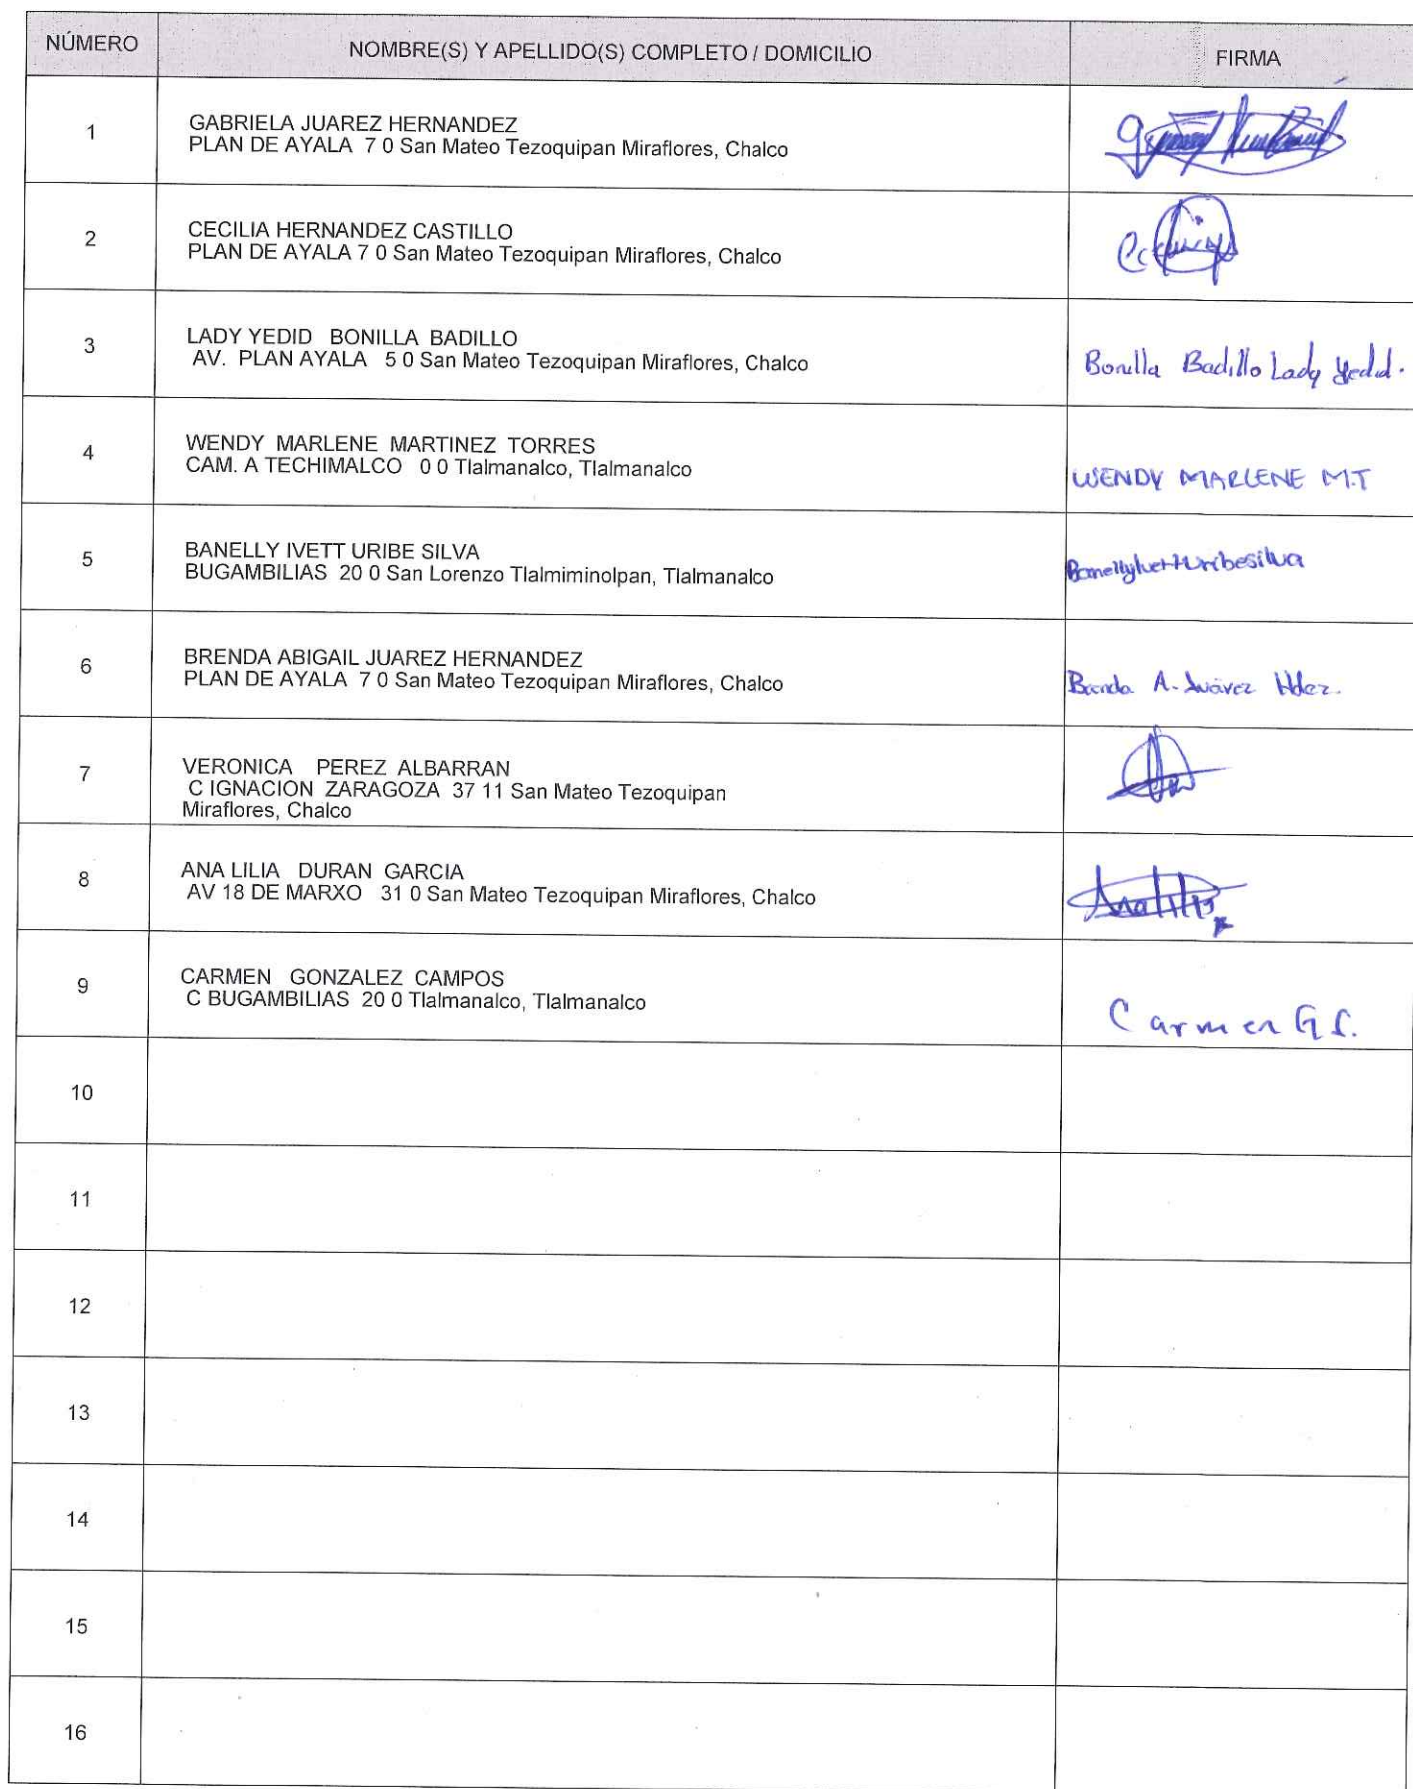 NÚMERO NOMBRE(S) Y APELLIDO(S) COMPLETO / DOMICILIO FIRMA
1 GABRIELA JUAREZ HERNANDEZ
PLAN DE AYALA 7 0 San Mateo Tezoquipan Miraflores, Chalco
2 CECILIA HERNANDEZ CASTILLO
PLAN DE AYALA 7 0 San Mateo Tezoquipan Miraflores, Chalco
3 LADY YEDID BONILLA BADILLO
AV. PLAN AYALA 5 0 San Mateo Tezoquipan Miraflores, Chalco
Bonilla Badillo Lady Yedid.
4 WENDY MARLENE MARTINEZ TORRES
CAM. A TECHIMALCO 0 0 Tlalmanalco, Tlalmanalco
WENDY MARLENE M.T
5 BANELLY IVETT URIBE SILVA
BUGAMBILIAS 20 0 San Lorenzo Tlalmiminolpan, Tlalmanalco
Banelly Ivett Uribe silva
6 BRENDA ABIGAIL JUAREZ HERNANDEZ
PLAN DE AYALA 7 0 San Mateo Tezoquipan Miraflores, Chalco
Brenda A. Juárez Hdez.
7 VERONICA PEREZ ALBARRAN
C IGNACION ZARAGOZA 37 11 San Mateo Tezoquipan
Miraflores, Chalco
8 ANA LILIA DURAN GARCIA
AV 18 DE MARXO 31 0 San Mateo Tezoquipan Miraflores, Chalco
Ana Lilia
9 CARMEN GONZALEZ CAMPOS
C BUGAMBILIAS 20 0 Tlalmanalco, Tlalmanalco
Carmen G C.
10
11
12
13
14
15
16